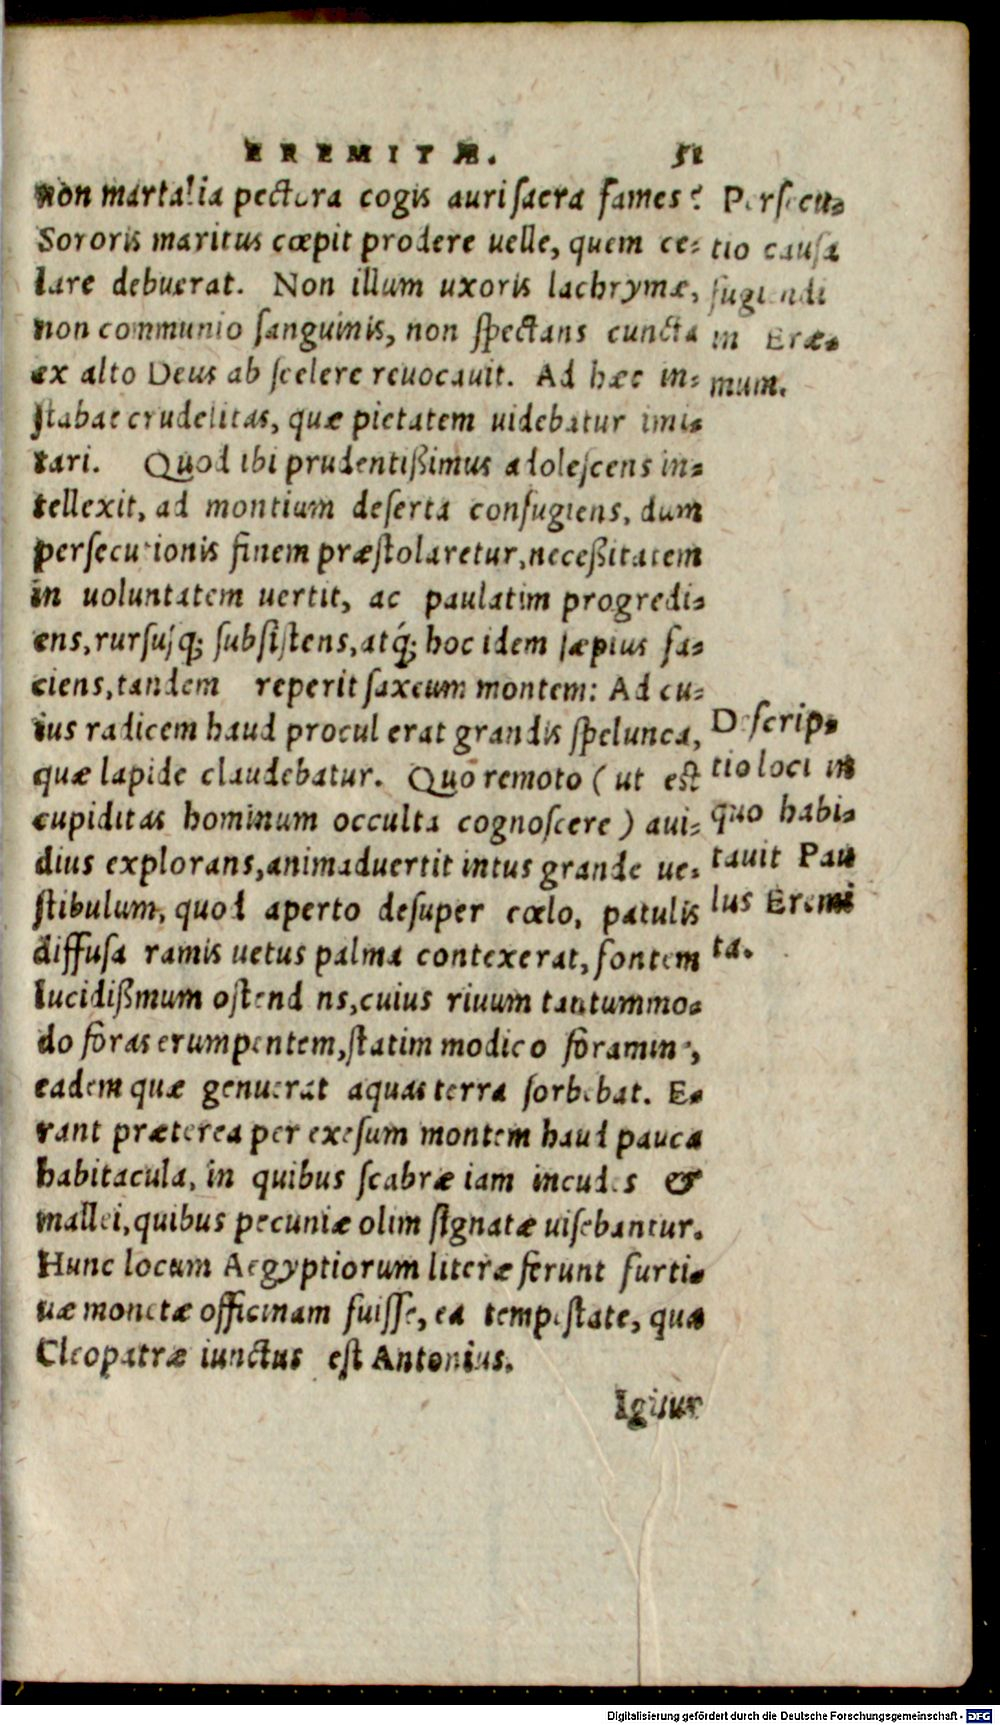 EREMITÆ. 51
non martalia pectora cogis auri sacra fames?
Sororis maritus cœpit prodere uelle, quem ce-
lare debuerat. Non illum uxoris lachrymæ,
non communio sanguinis, non spectans cuncta
ex alto Deus ab scelere reuocauit. Ad hæc in-
stabat crudelitas, quæ pietatem uidebatur imi-
tari. Quod ibi prudentißimus adolescens in-
tellexit, ad montium deserta confugiens, dum
persecutionis finem præstolaretur, neceßitatem
in uoluntatem uertit, ac paulatim progredi-
ens, rursusq; subsistens, atq́; hoc idem sæpius fa-
ciens, tandem reperit saxeum montem: Ad cu-
ius radicem haud procul erat grandis spelunca,
quæ lapide claudebatur. Quo remoto (ut est
cupiditas hominum occulta cognoscere) aui-
dius explorans, animaduertit intus grande ue-
stibulum, quod aperto desuper cœlo, patulis
diffusa ramis uetus palma contexerat, fontem
lucidißmum ostend ns, cuius riuum tantummo-
do foras erumpentem, statim modico foramine,
eadem quæ genuerat aquas terra sorbebat. E-
rant præterea per exesum montem haud pauca
habitacula, in quibus scabræ iam incudes &
mallei, quibus pecuniæ olim signatæ uisebantur.
Hunc locum Aegyptiorum literæ ferunt furti-
uæ monetæ officinam fuisse, ea tempestate, qua
Cleopatræ iunctus est Antonius.
Igitur
Persecu-
tio causa
fugiendi
in Eræ-
mum.
Descrip-
tio loci in
quo habi-
tauit Pau
lus Eremi
ta.
Digitalisierung gefördert durch die Deutsche Forschungsgemeinschaft - DFG